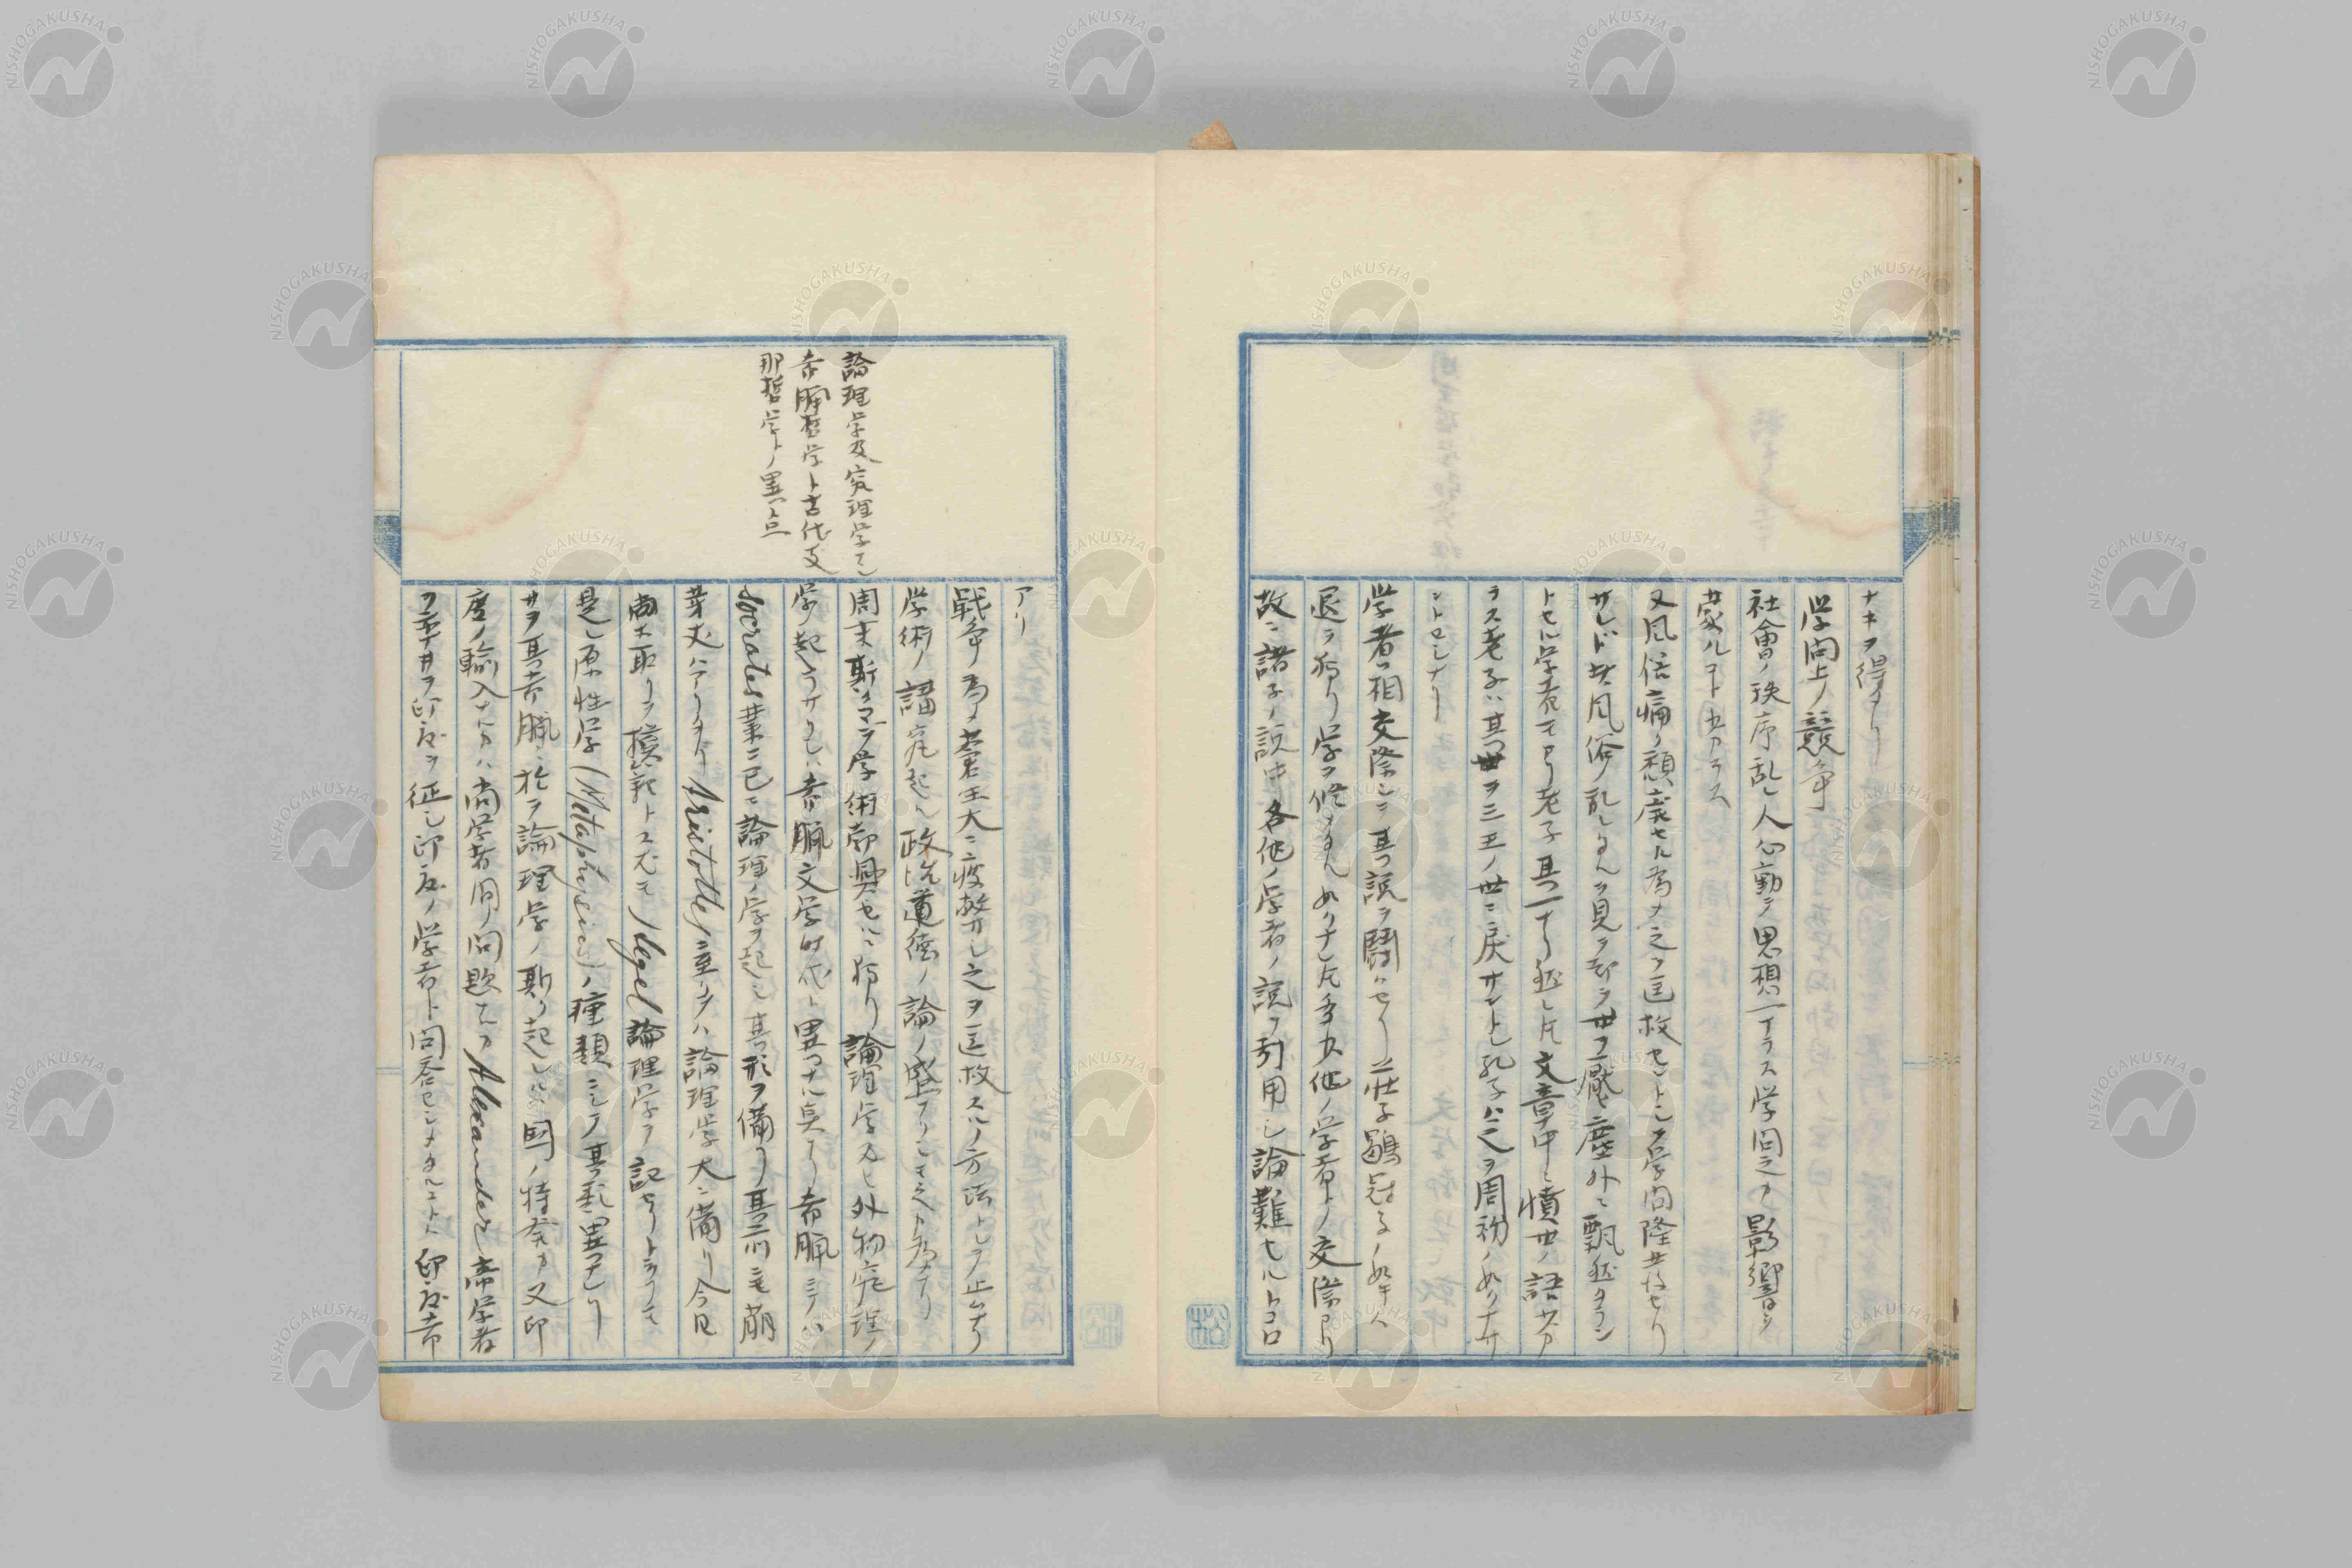 ナキヲ得タリ
学問上ノ競争
社會ノ秩序乱レ人心動テ思想一ナラス学問之カ影響ヲ
蒙ルコト少カラス
又風俗痛ク頽廃セル為メ之ヲ匡救セントシテ学問隆盛セリ
サレド其風俗ノ乱レタルヲ見テ却テ世ヲ厭ヒ塵外ニ飄然タラン
トセル学者モアリ老子其一ナリ然レ𪜈文章中ニ憤世ノ語少カ
ラス老子ハ其世ヲ三王ノ世ニ戻サントシ孔子ハ之ヲ周初ノ如クナサ
ントセシナリ
学者ノ相交際シテ其説ヲ闘ハセリ荘子鶡冠子ノ如キハ
退テ独リ学ヲ修メタル如クナレ𪜈多少他ノ学者トノ交際アリ
故ニ諸子ノ説中各他ノ学者ノ説ヲ引用シ論難セルトコロ
アリ
戦争ノ為メ蒼生大ニ疲弊シ之ヲ匡救スルノ方法トシテ止ムナク
学術ノ講究起ル政治道徳ノ論ノ盛ナリシモ之カ為ナリ
周末斯クマテ学術勃興セルニ独リ論理学及ヒ外物究理ノ
学ノ起ラサリシハ希臘文学時代ト異ナル点ナリ希臘ニテハ
Socrates業ニ已ニ論理ノ学ヲ起シ其形ヲ備ヘリ其前ニモ萌
芽丈ハアリタリ Aristotleニ至リテハ論理学大ニ備リ今日
尚ホ取リテ模範トス尤モHegel論理学ヲ記セリト云フモ
是レ原性学(Metaphysics)ノ種類ニシテ其形異ナレリ
サテ其希臘ニ於テ論理学ノ斯ク起レルハ国ノ特発カ又印
度ノ輸入ナルカハ尚学者間ノ問題ナルカAlexander帝学者
ヲ率井テ印度ヲ征シ印度ノ学者ト問答セシメタルコトト印度希
論理学及究理学ハ
希臘哲学ト古代支
那哲学トノ異ナル点
NISHOGAKUSHA